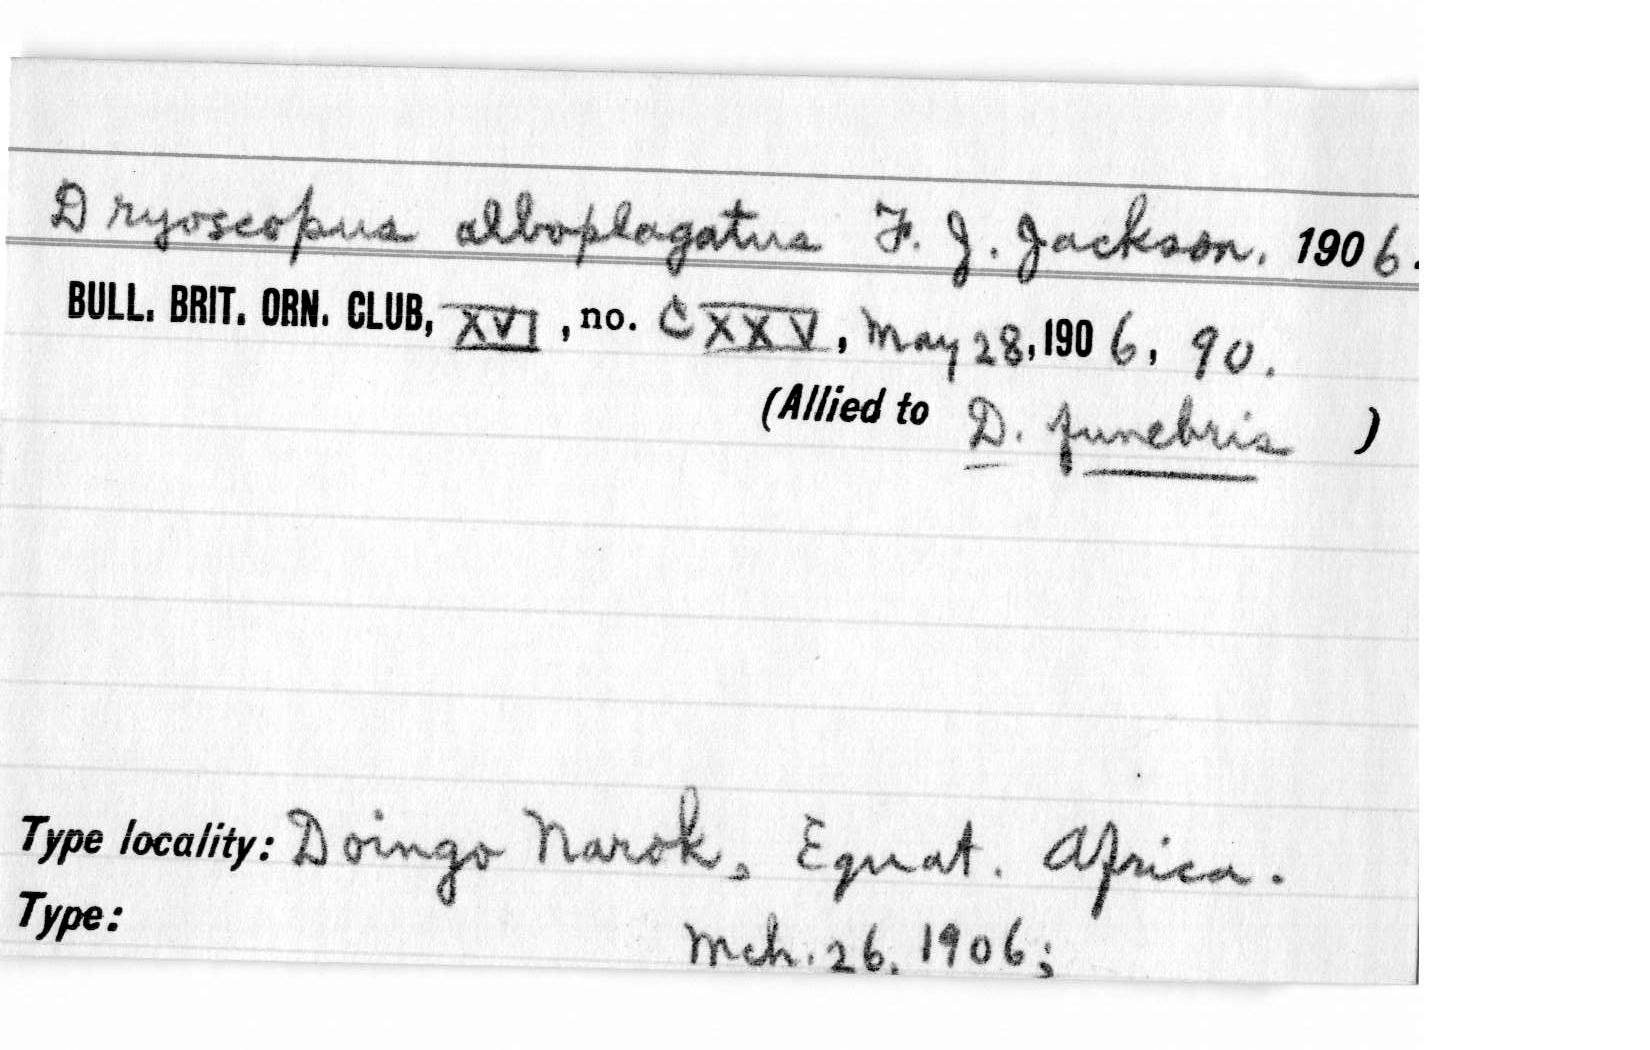 Dryoscopus alboplagatus F. J. Jackson, 1906.
BULL. BRIT. ORN. CLUB, XVI, no. CXXV, May 28, 1906, 90.
(Allied to D. funebris )
Type locality: Doingo Narok, Equat. Africa.
Type: Mch. 26, 1906;